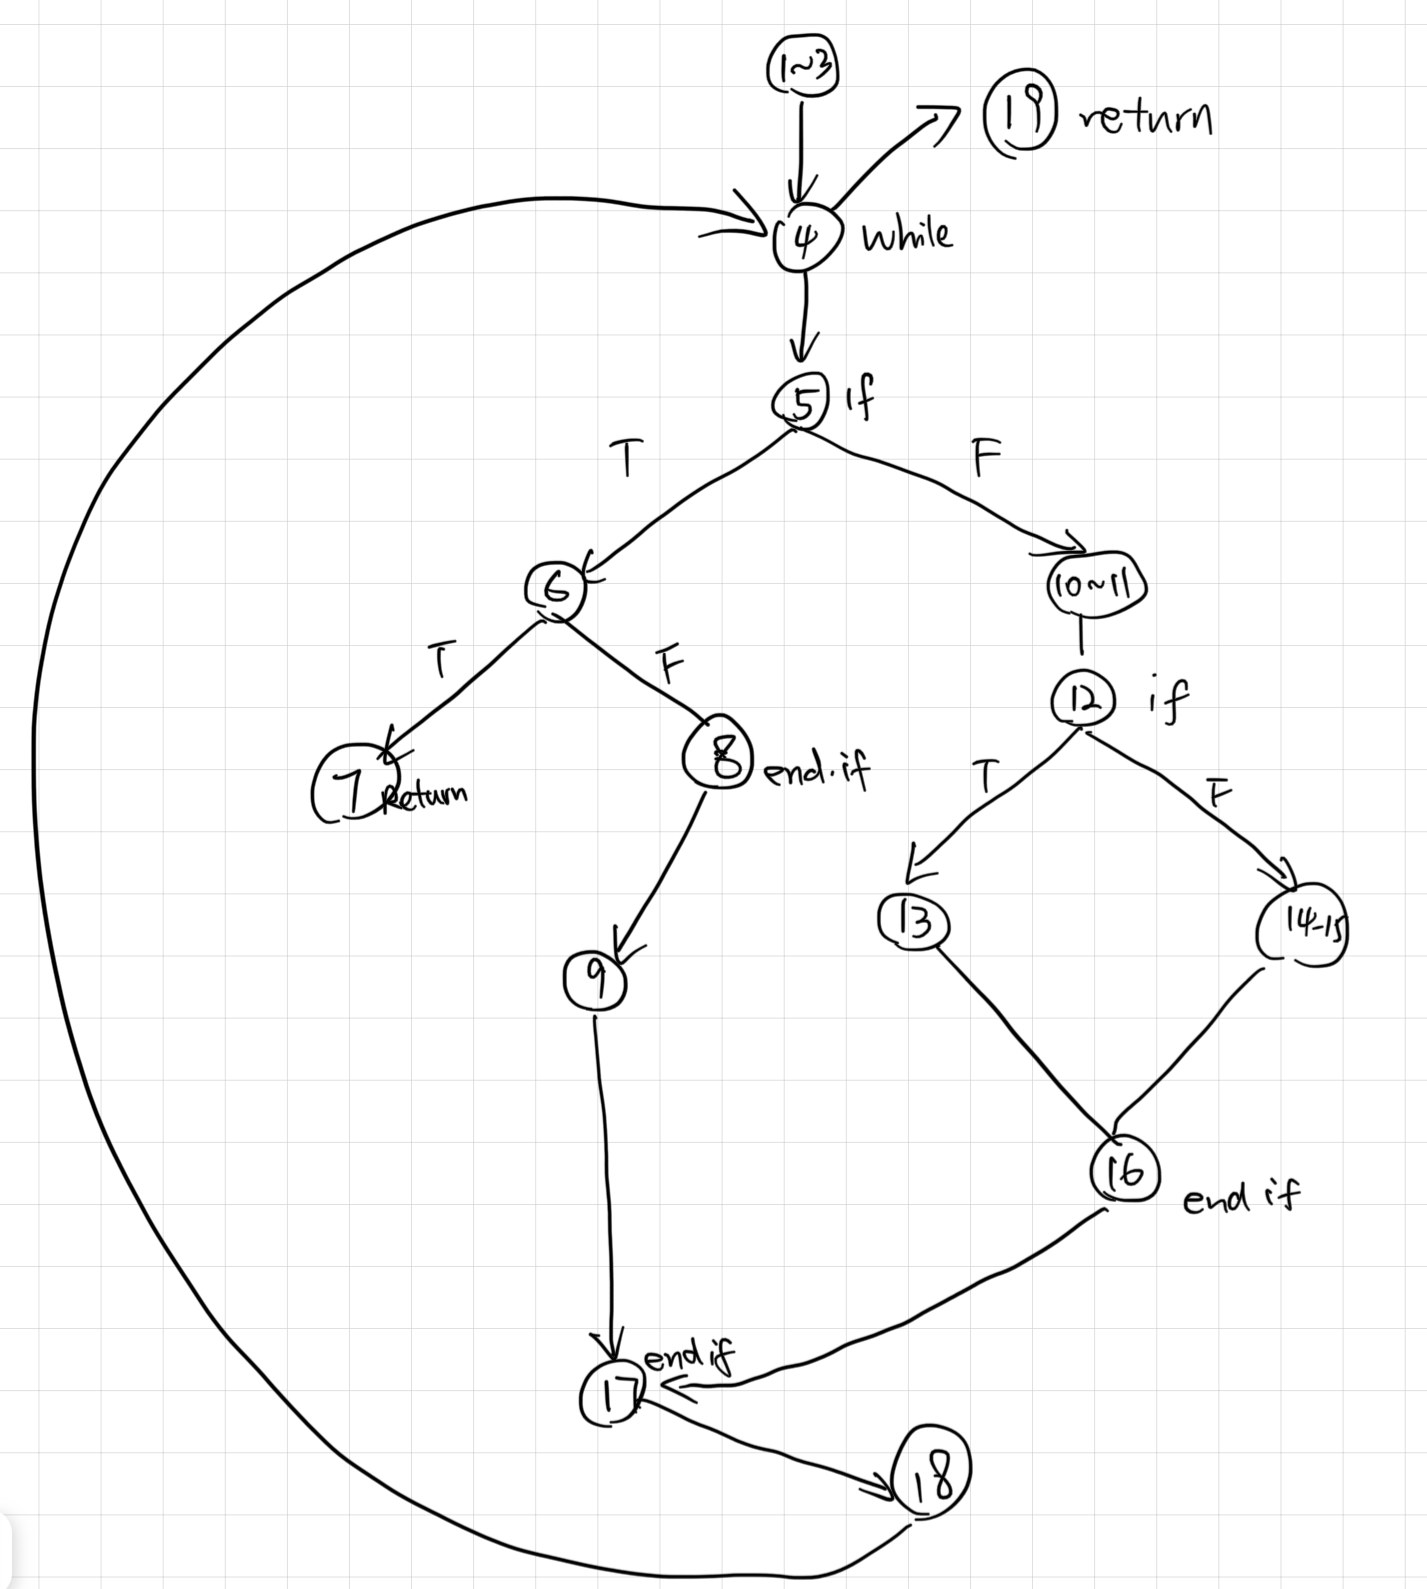 1~3
19 return
4 while
5 if
T
F
6
10~11
T
F
12 if
7 Return
8 end.if
T
F
13
14-15
9
16
end if
end if
17
18